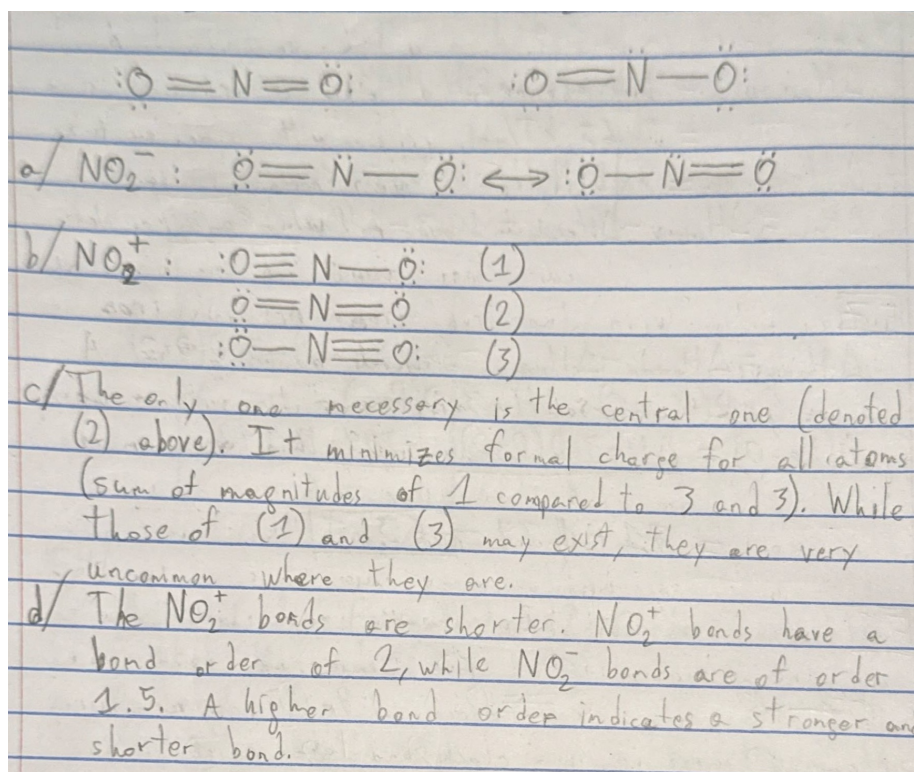 :Ö̤ = N = Ö: :Ö̤ = N̈ — Ö̤:
a/ NO₂⁻ : Ö̤ = N̈ — Ö̤: ↔ :Ö̤ — N̈ = Ö̤
b/ NO₂⁺ : :O ≡ N — Ö̤: (1)
Ö̤ = N = Ö̤ (2)
:Ö̤ — N ≡ O: (3)
c/ The only one necessary is the central one (denoted
(2) above). It minimizes formal charge for all atoms
(sum of magnitudes of 1 compared to 3 and 3). While
those of (1) and (3) may exist, they are very
uncommon where they are.
d/ The NO₂⁺ bonds are shorter. NO₂⁺ bonds have a
bond order of 2, while NO₂⁻ bonds are of order
1.5. A higher bond order indicates a stronger an
shorter bond.